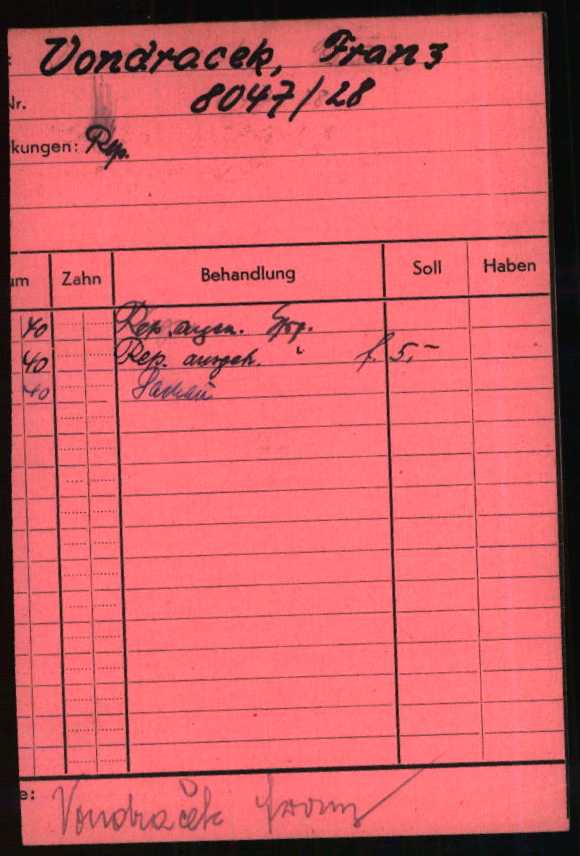 : Vondracek, Franz
Nr. 8047/28
kungen: Rep.
um Zahn Behandlung Soll Haben
40 Rep. angen.
40 Rep. ausgeh. " f. 5,-
40 Dachau
e: Vondraček Franz